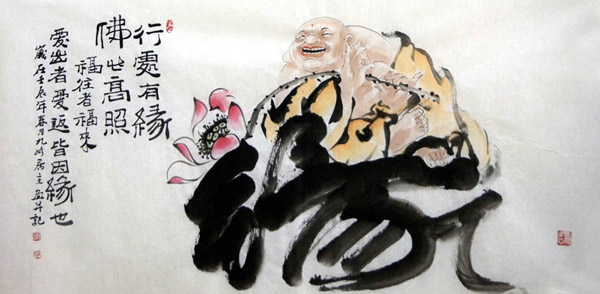 行處有緣
佛光高照
福往者福來
愛出者愛返皆因緣也
歲在壬辰年春月九居主画并記
缘